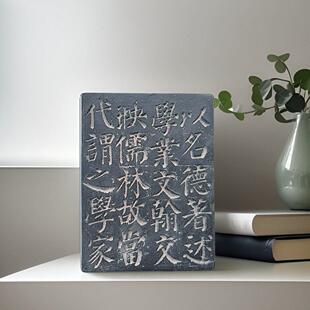 以名德著述
學業文翰交
映儒林故當
代謂之學家